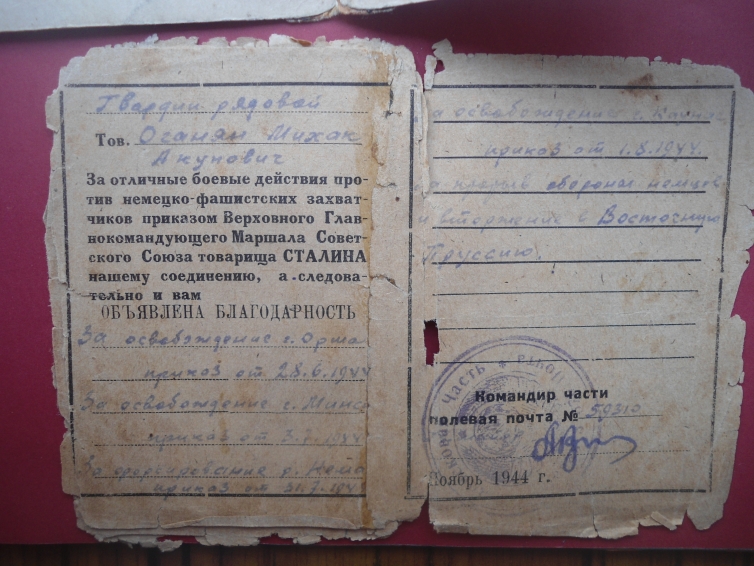 Гвардии рядовой
Тов. Осанян Михак
Акупович
За отличные боевые действия про-
тив немецко-фашистских захват-
чиков приказом Верховного Глав-
нокомандующего Маршала Совет-
ского Союза товарища СТАЛИНА
нашему соединению, а следова-
тельно и вам
ОБЪЯВЛЕНА БЛАГОДАРНОСТЬ
За освобождение г. Орша
приказ от 28.6.1944
За освобождение г. Минс
приказ от 3.7.1944
За форсирование р. Нема
приказ от 31.7.194
а освобождение г. Каунас
приказ от 1.8.1944.
прорыв обороны немцев
и вторжение в Восточную
Пруссию.
Часть
Командир части
полевая почта № 59310
Ноябрь 1944 г.